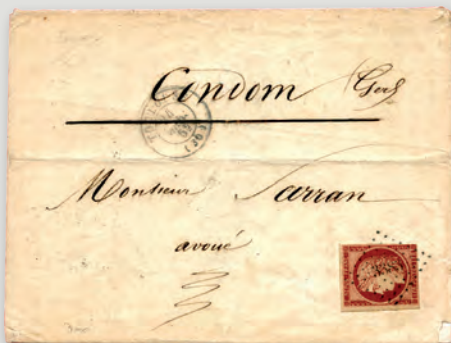 Condom Gers
Monsieur Sarran
avoué